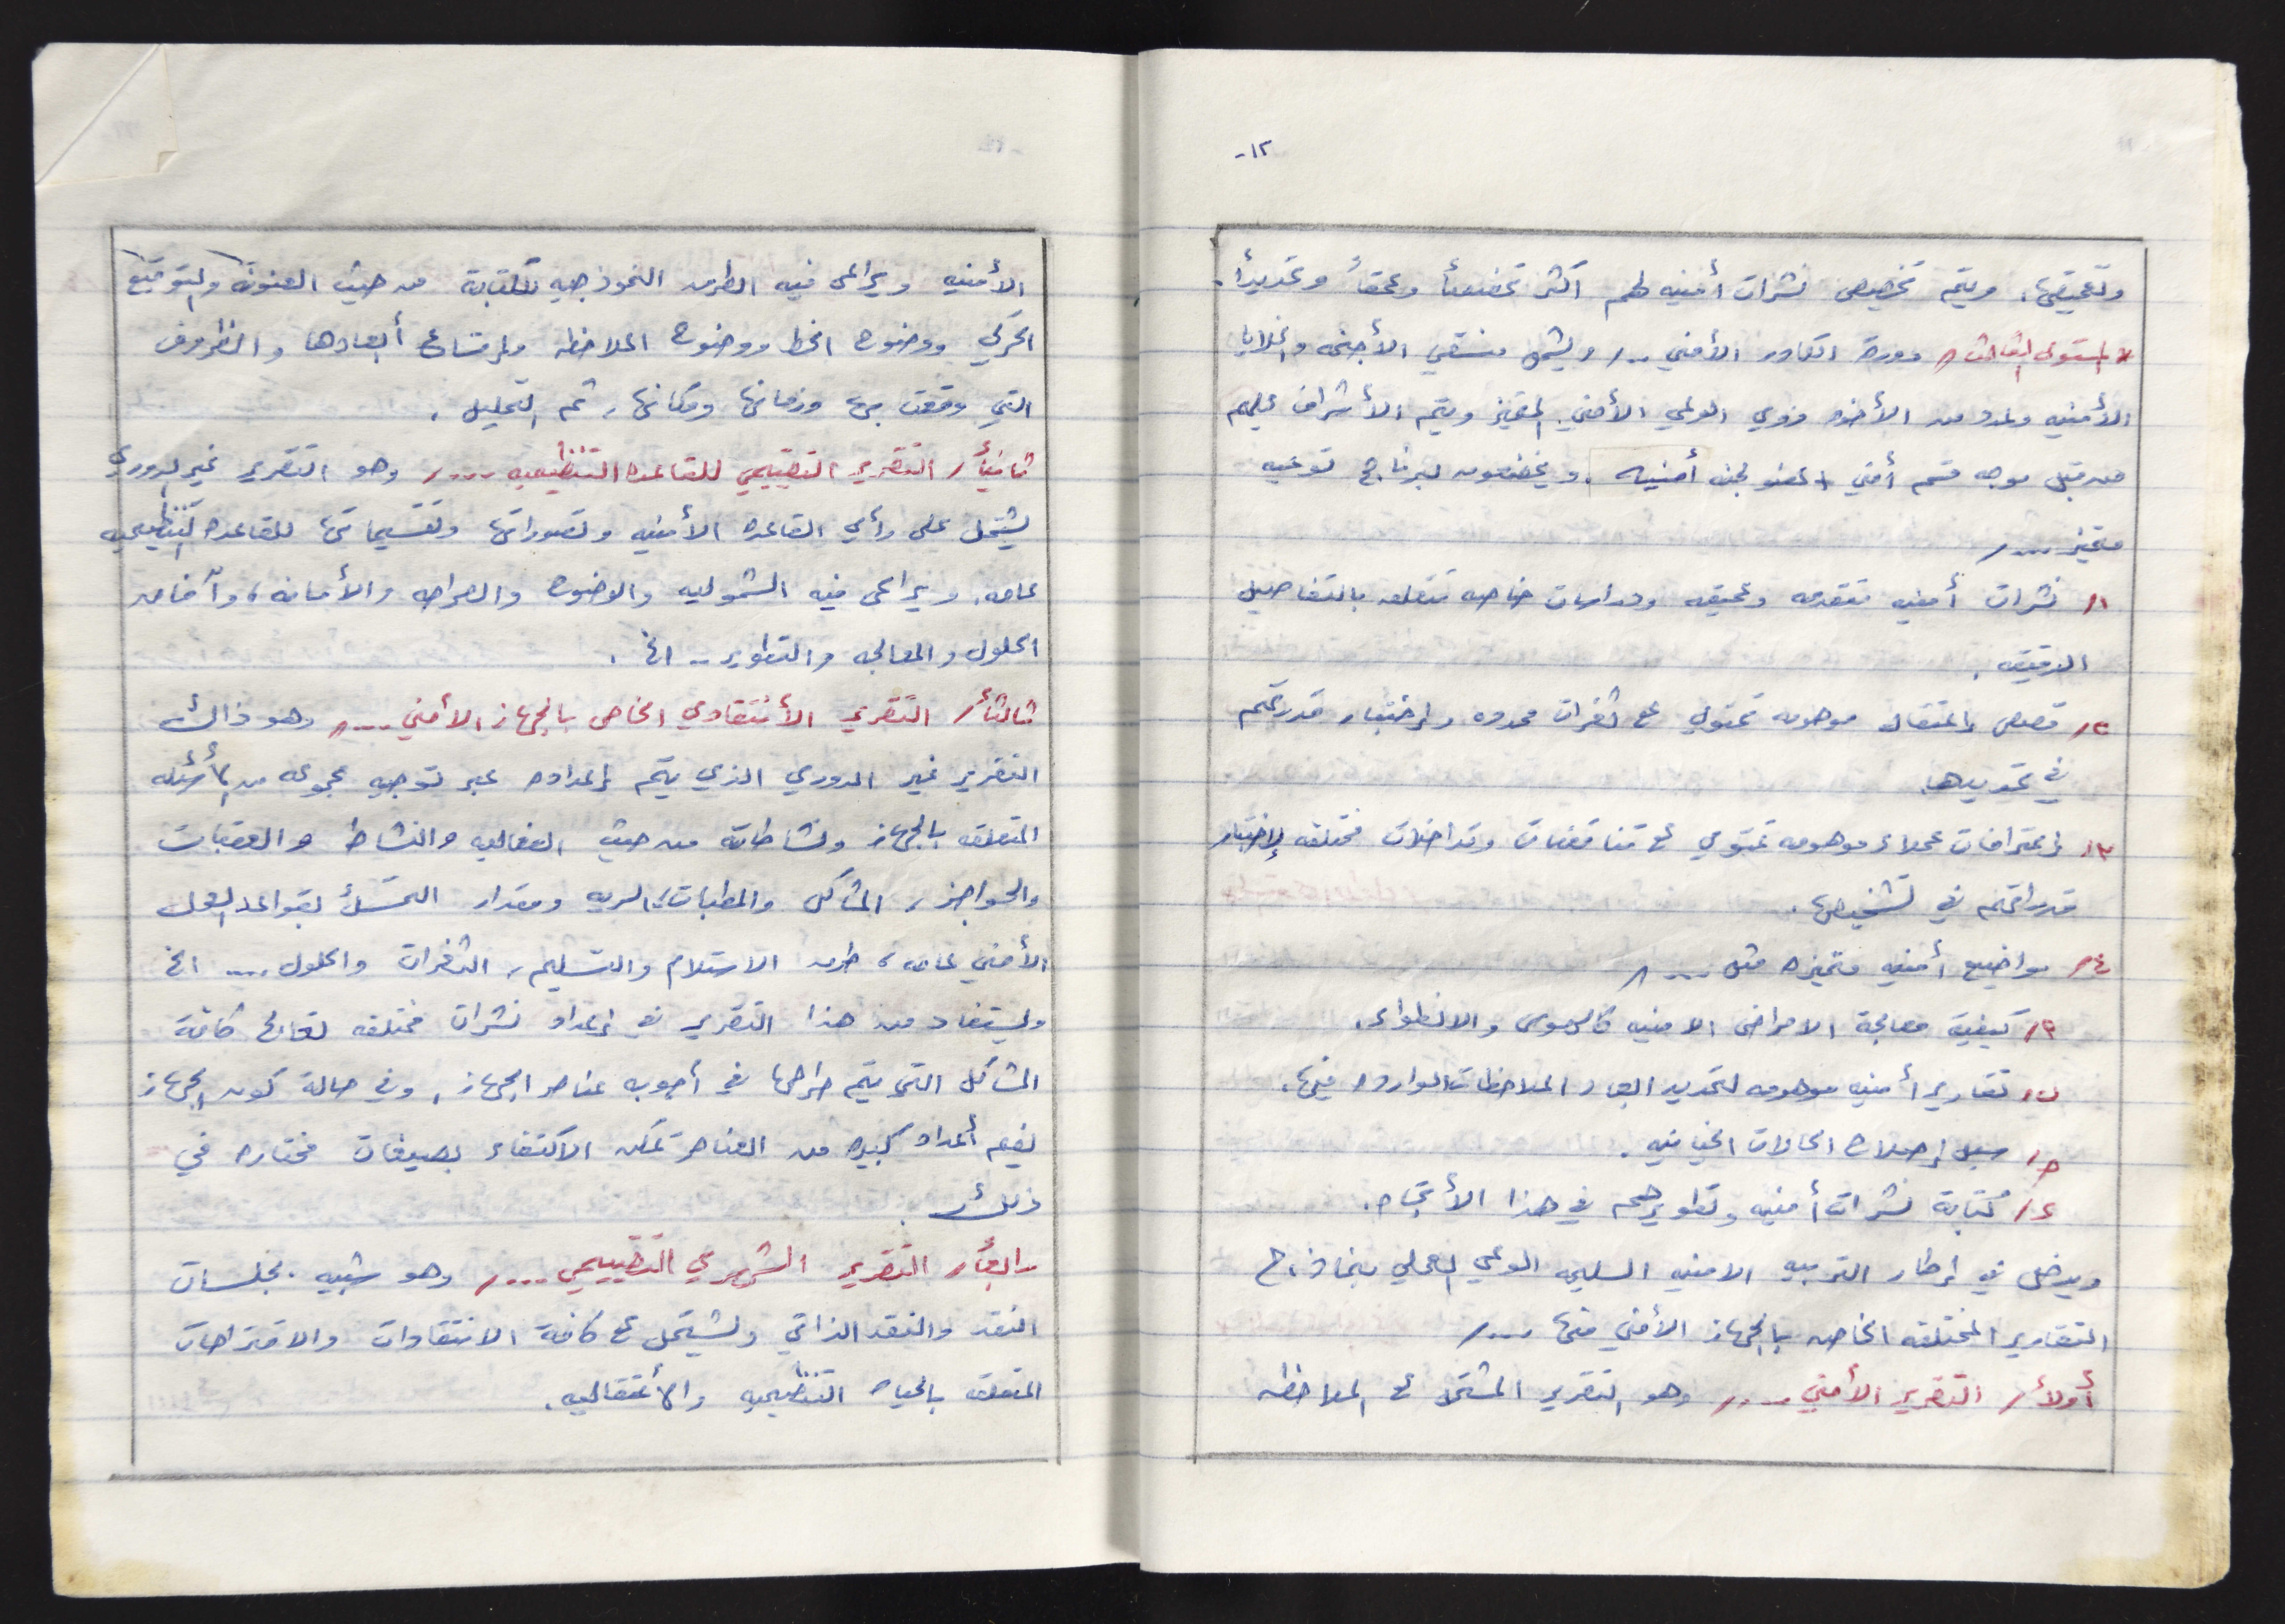 ١٢-
وتعميقها. ويتم تخصيص نشرات أمنيه لهم أكثر تخصصاً وعمقاً وتحديداً.
* المستوى الثالث/ دورة الكادر الأمني ../ ويشمل منسقي الأجنحه والخلايا
الأمنيه وعدد من الأخوه ذوي الوعي الأمني المتميز ويتم الأشراف عليهم
من قبل موجه قسم أمني + عضو لجنه أمنيه. ويخضعون لبرنامج توعيه
متميز .../
١/ نشرات أمنيه متقدمه وعميقه ودراسات خاصه تتعلق بالتفاصيل
الدقيقه.
٢/ قصص إعتقال موهومه تحتوي على ثغرات محدده ولإختبار قدرتهم
في تحديدها.
٣/ إعترافات عملاء موهومه تحتوي على تناقضات وتداخلات مختلفه لإختبار
قدراتهم في تشخيصها.
٤/ مواضيع أمنيه متميزه مثل .../
أ/ كيفية معالجة الامراض الامنيه كالهوس والانطواء.
ب/ تقارير أمنيه موهومه لتحديد ابعاد الملاحظات الوارده فيها.
ج/ سبل إصلاح الحالات الخيانيه.
د/ كتابة نشرات أمنيه وتطويرهم في هذا الأتجاه.
ويدخل في إطار التربيه الامنيه السليمه الوعي العملي بنماذج
التقارير المختلفه الخاصه بالجهاز الأمني منها .../
أولاً/ التقرير الأمني .../ وهو التقرير المشتمل على الملاحظه
الأمنيه ويراعى فيه الطرق النموذجيه للكتابة من حيث العنونة والتوقيع
الحركي ووضوح الخط ووضوح الملاحظه وإتساع أبعادها والظروف
التي وقعت بها وزمانها ومكانها، ثم التحليل.
ثانياً/ التقرير التقييمي للقاعده التنظيميه ..../ وهو التقرير غير الدوري
يشتمل على رأي القاعده الأمنيه وتصوراتها وتقسيماتها للقاعده التنظيميه
عامه. ويراعى فيه الشموليه والوضوح والصراحه والأمانه، وآفاق
الحلول والمعالجه والتطوير .. الخ.
ثالثاً/ التقرير الأنتقادي الخاص بالجهاز الأمني .../ وهو ذالك
التقرير غير الدوري الذي يتم إعداده عبر توجيه مجموعه من الأسئله
المتعلقه بالجهاز ونشاطاته من حيث الفعاليه والنشاط والعقبات
والحواجز، المشاكل والمطبات، السريه ومقدار التمسك بقواعد العمل
الأمني عامه، طرق الاستلام والتسليم، الثغرات والحلول ... الخ
ويستفاد من هذا التقرير في إعداد نشرات مختلفه لعلاج كافة
المشاكل التي يتم طرحها في أجوبه عناصر الجهاز. وفي حالة كون الجهاز
يضم أعداد كبيره من العناصر يمكن الاكتفاء بصيغات مختاره في
ذلك.
رابعاً/ التقرير الشهري التقييمي ..../ وهو شبيه بجلسات
النقد والنقد الذاتي ويشتمل على كافة الانتقادات والاقتراحات
المتعلقه بالحياه التنظيميه والأعتقاليه.